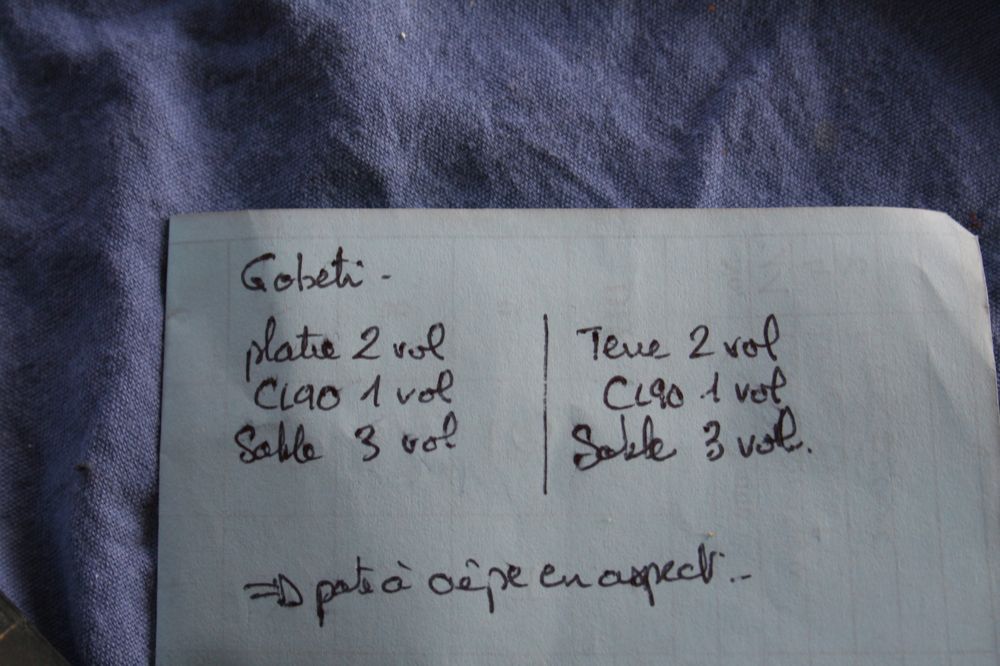 Gobeti -
platre 2 vol | Terre 2 vol
CL90 1 vol | CL90 1 vol
Sable 3 vol | Sable 3 vol.
=> pate à crêpe en aspect..